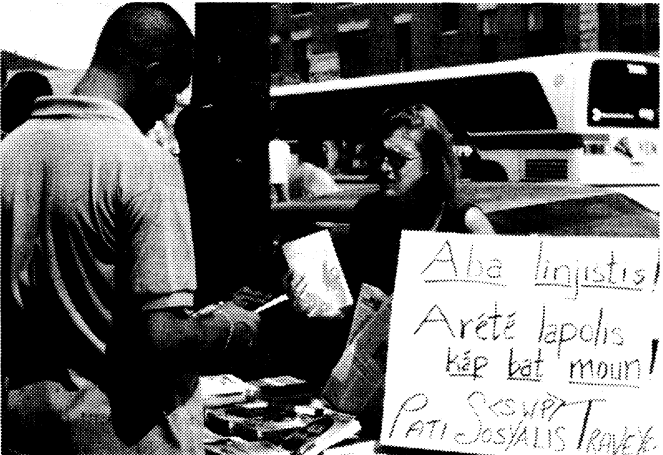 Aba linjistis!
Arété lapolis
káp bat moun!
<SWP>
PATI SOSYALIS TRAVEYE